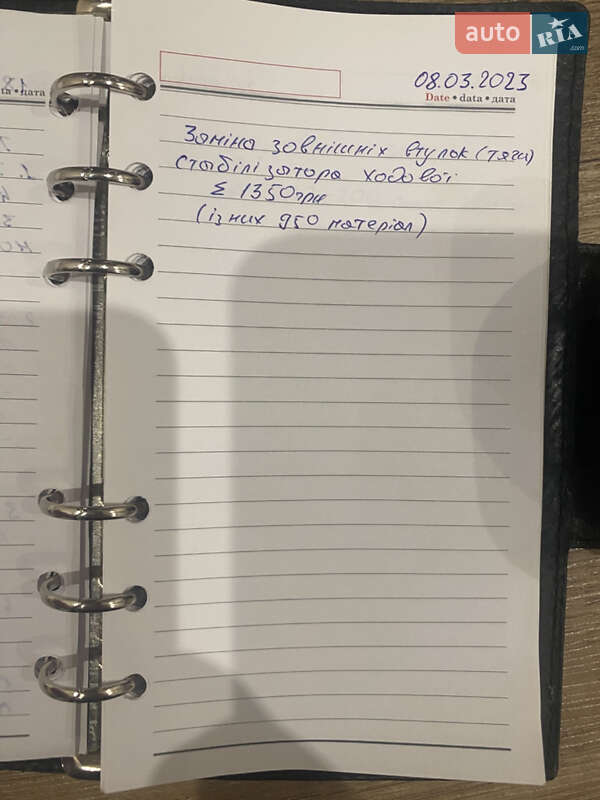 auto RIA .com
08.03.2023
Date • data • дата
Заміна зовнішніх втулок (тяги)
стабілізатора ходової
Σ 1350 грн
(із них 950 матеріал)
та • дата